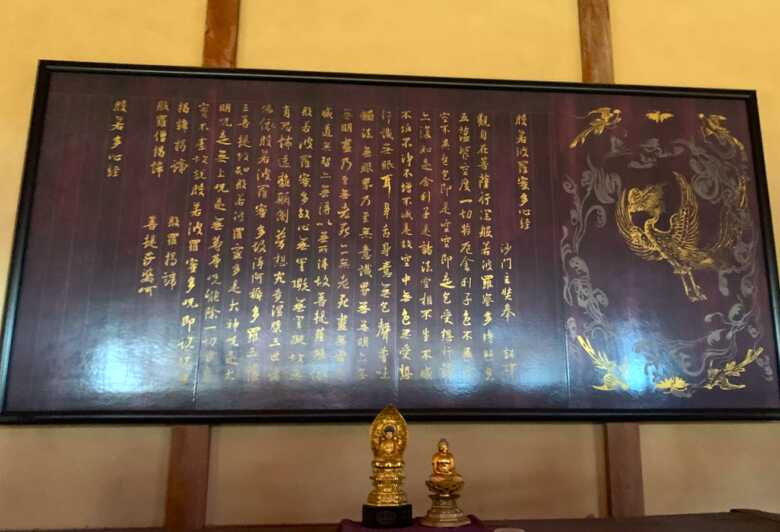 般若波羅蜜多心経
沙門玄奘奉 詔訳
觀自在菩薩行深般若波羅蜜多時照見
五蘊皆空度一切苦厄舍利子色不異空
空不異色色即是空空即是色受想行識
亦復如是舍利子是諸法空相不生不滅
不垢不淨不增不減是故空中無色無受想
行識無眼耳鼻舌身意無色聲香味
觸法無眼界乃至無意識界無無明亦無
無明盡乃至無老死亦無老死盡無苦集
滅道無智亦無得以無所得故菩提薩埵依
般若波羅蜜多故心無罣礙無罣礙故無
有恐怖遠離顛倒夢想究竟涅槃三世諸
佛依般若波羅蜜多故得阿耨多羅三藐
三菩提故知般若波羅蜜多是大神咒是大
明咒是無上咒是無等等咒能除一切苦真
實不虛故說般若波羅蜜多咒即說咒曰
揭諦揭諦 般羅揭諦
般羅僧揭諦 菩提莎婆呵
般若多心經